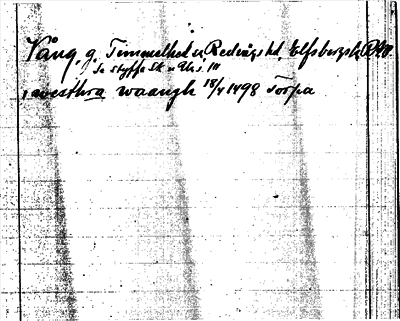 Vång, g. Timmelhed sn, Redvägs hd, Elfsborgs l.
Se Styffe Sk. o. Un. s. 111
, westhra waangh 18/4 1498 Torpa